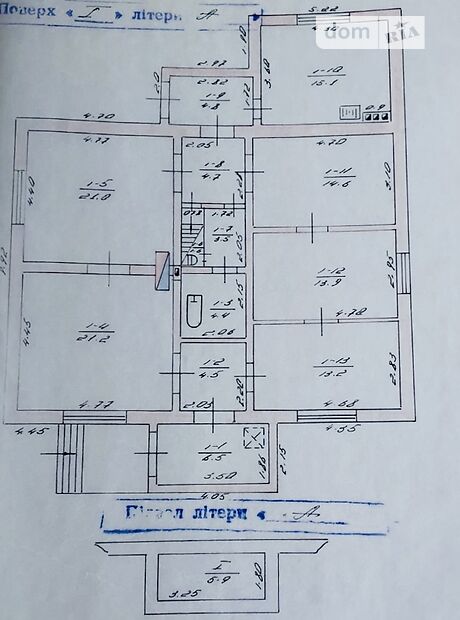 Поверх « I » літери А
dom RIA
5.22
2.97
2.82
2.0
1.90
3.80
1.72
1-9
4.8
1-10
15.1
0.9
4.70
4.77
2.05
4.70
1-5
21.0
4.40
1-8
4.7
1-11
14.6
3.10
1.72
1-7
3.5
2.05
1-12
13.9
2.95
4.78
2.15
1-3
4.4
2.06
4.45
1-4
21.2
1-2
4.5
2.20
1-13
13.2
2.83
4.77
2.03
4.68
4.45
4.55
1-1
6.5
3.50
1.86
2.15
4.05
Підвал літери « А
I
5.9
3.25
1.80